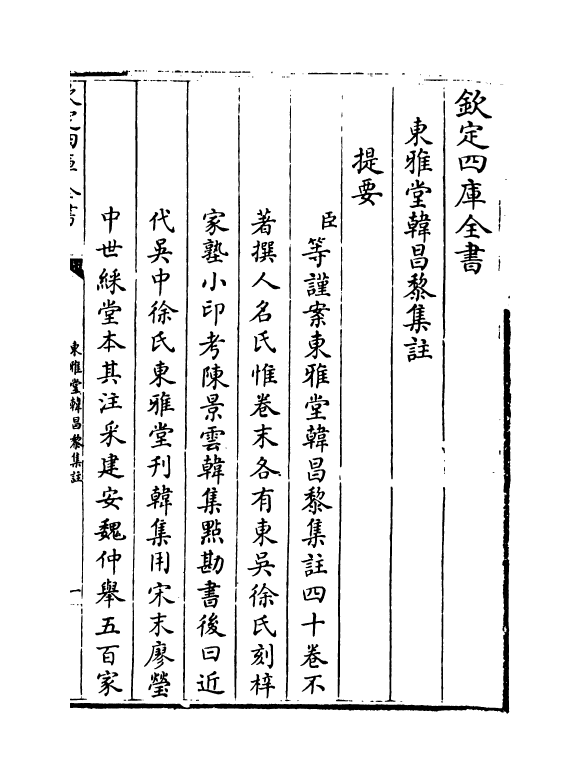 欽定四庫全書
東雅堂韓昌黎集註
提要
臣等謹案東雅堂韓昌黎集註四十卷不
著撰人名氏惟卷末各有東吳徐氏刻梓
家塾小印考陳景雲韓集㸃勘書後曰近
代吳中徐氏東雅堂刊韓集用宋末廖瑩
中世綵堂本其注采建安魏仲舉五百家
欽定四庫全書
東雅堂韓昌黎集註
一